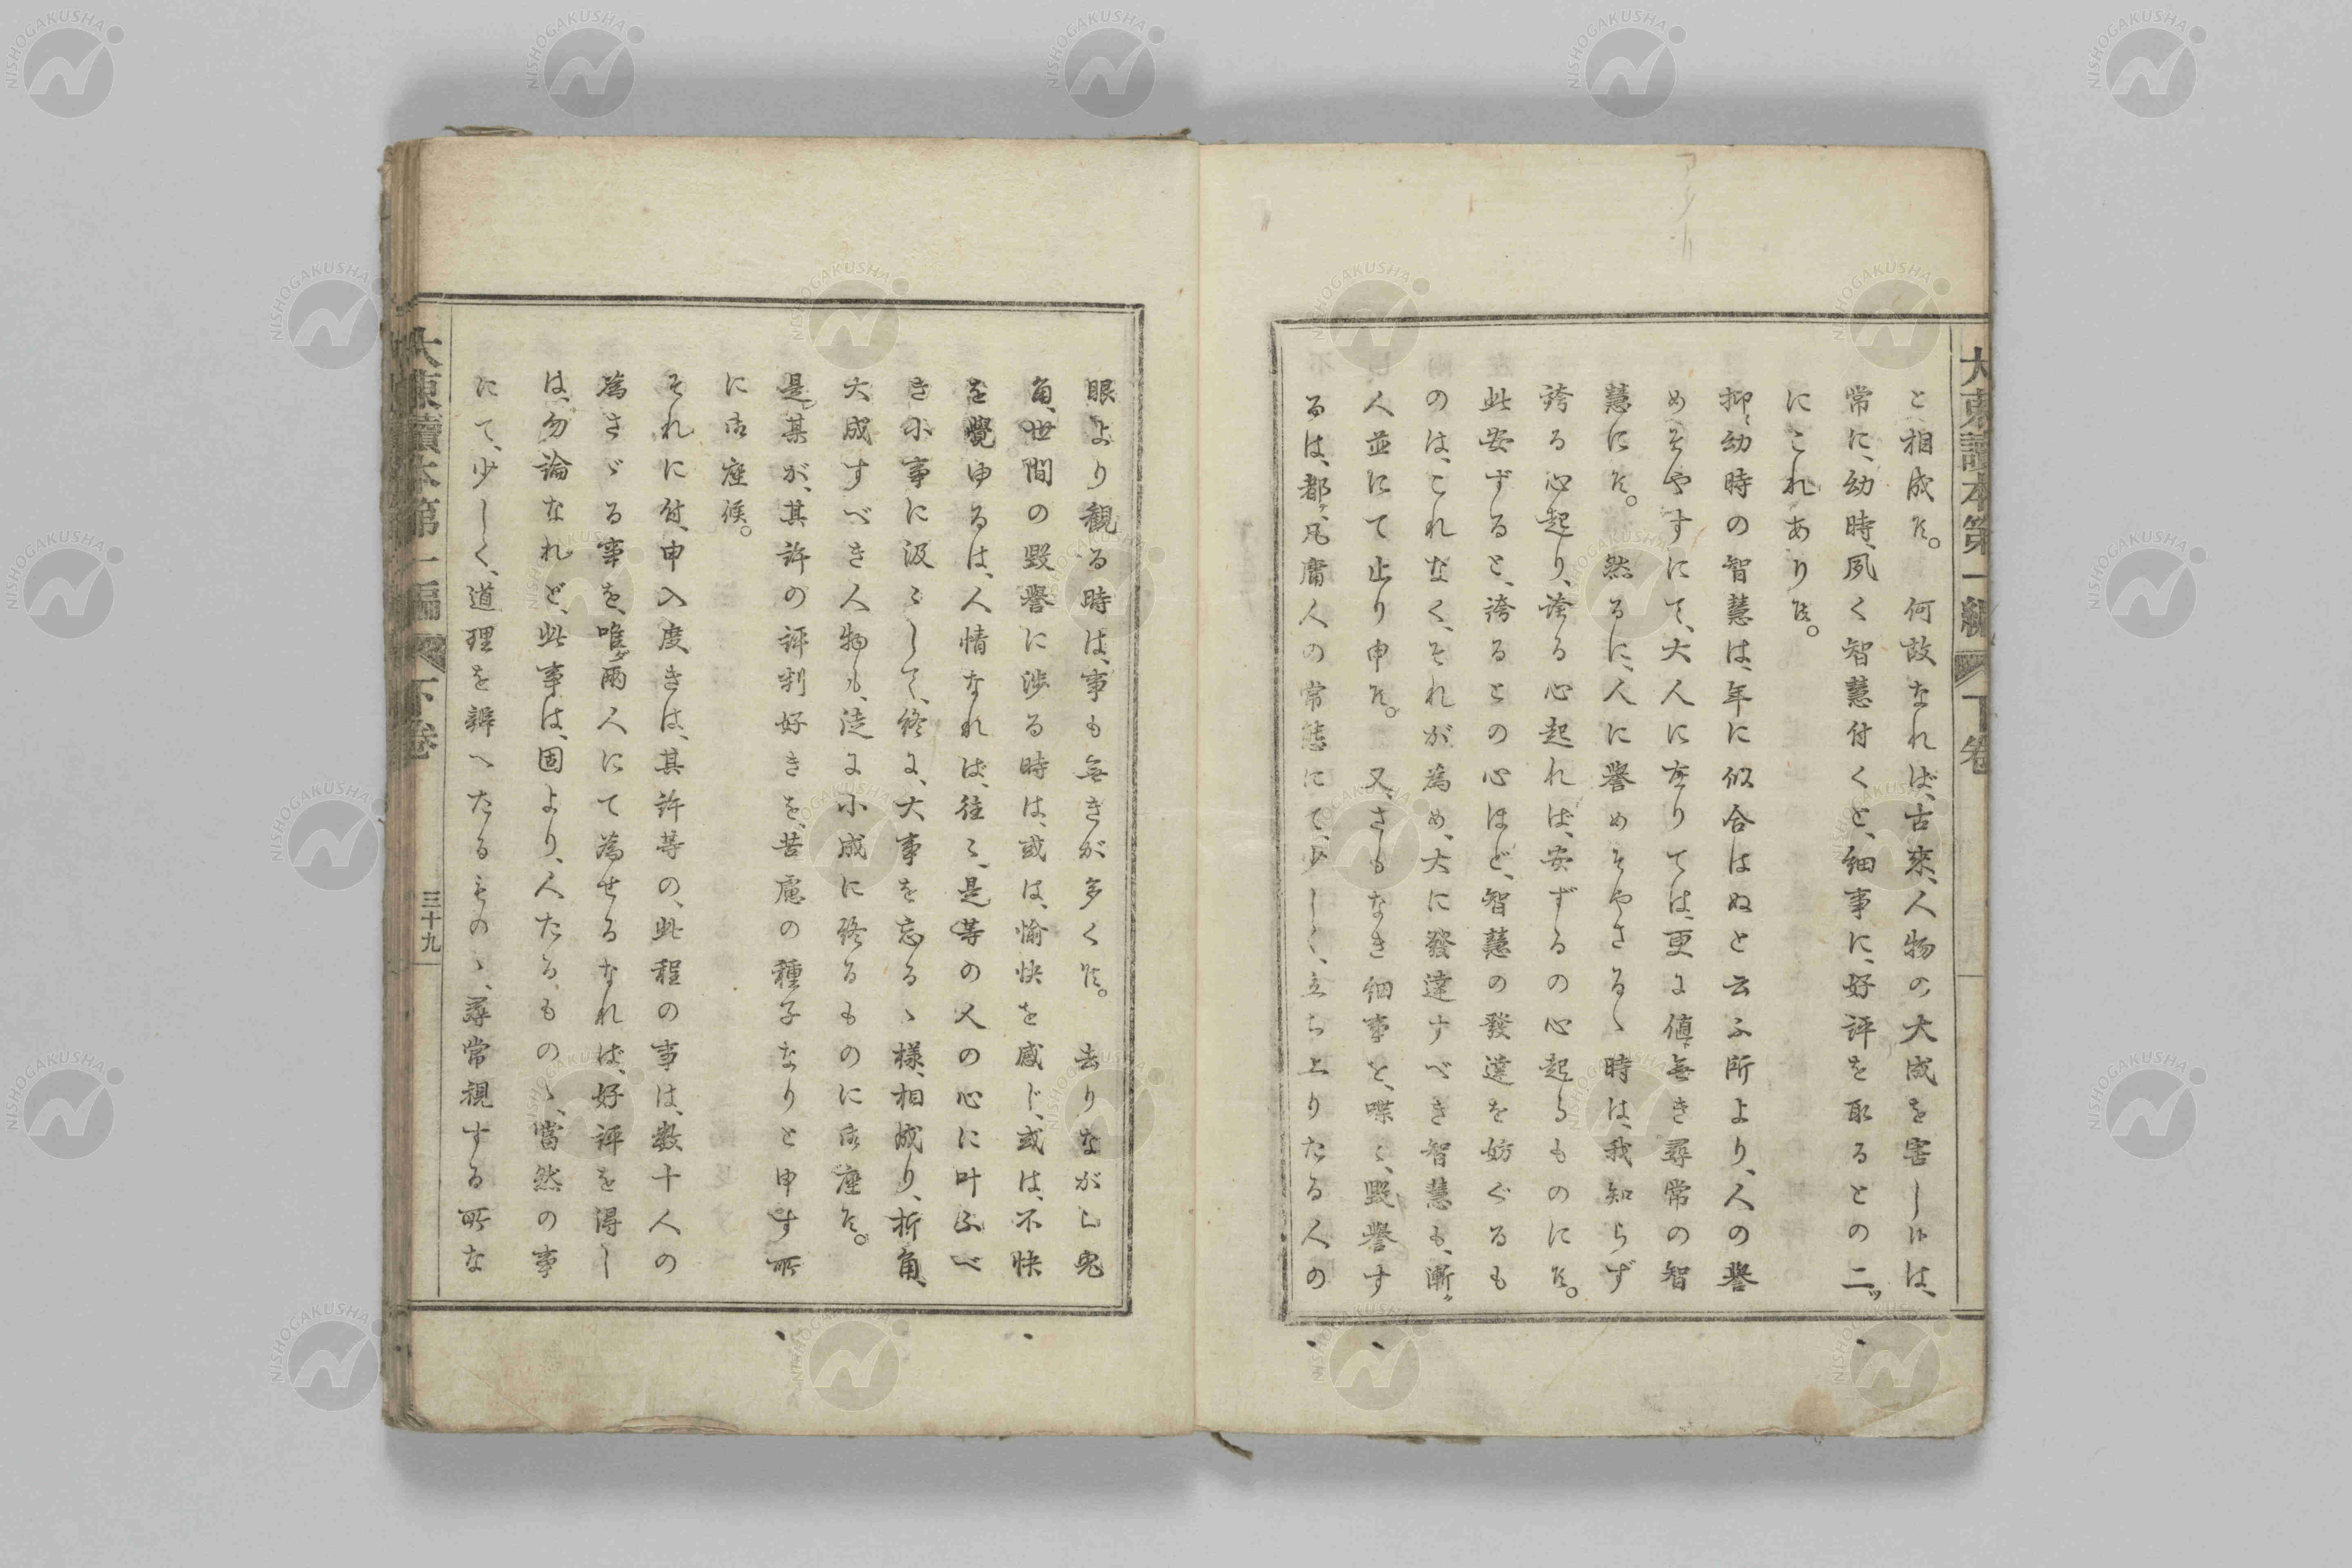 大東讀本第一編 下卷
と相成候。 何故なれば、古來、人物の大成を害し候は、
常に、幼時、夙く智慧付くと、細事に、好評を取るとの二ッ
にこれあり候。
抑〻幼時の智慧は、年に似合はぬと云ふ所より、人の譽
めそやすにて、大人に在りては、更に値無き尋常の智
慧に候。 然るに、人に譽めそやさるゝ時は、我知らず
誇る心起り、誇る心起れば、安ずるの心起るものに候。
此安ずると、誇るとの心ほど、智慧の發達を妨ぐるも
のは、これなく、それが為め、大に發達すべき智慧も、漸ゞ
人並にて止り申候。 又、さもなき細事を、喋〻、毀譽す
るは、都ヶ、凡庸人の常態にて、少しく、立ち上りたる人の
眼より観る時は、事も無きが多く候。 去りながら兎
角、世間の毀譽に渉る時は、或は、愉快を感じ、或は、不快
を覺ゆるは、人情なれば、往〻、是等の人の心に叶ふべ
き小事に汲〻して、終に、大事を忘るゝ様、相成り、折角、
大成すべき人物も、徒に小成に終るものに御座候。
是、某が、其許の評判好きを、苦慮の種子なりと申す所
に御座候。
それに付、申入度きは、其許等の、此程の事は、数十人の
為さゞる事を、唯ダ兩人にて為せるなれば、好評を得し
は、勿論なれど、此事は、固より、人たる、ものゝ、當然の事
にて、少しく、道理を辨へたるものゝ、尋常視する所な
大東讀本第一編 下卷
三十九
NISHOGAKUSHA